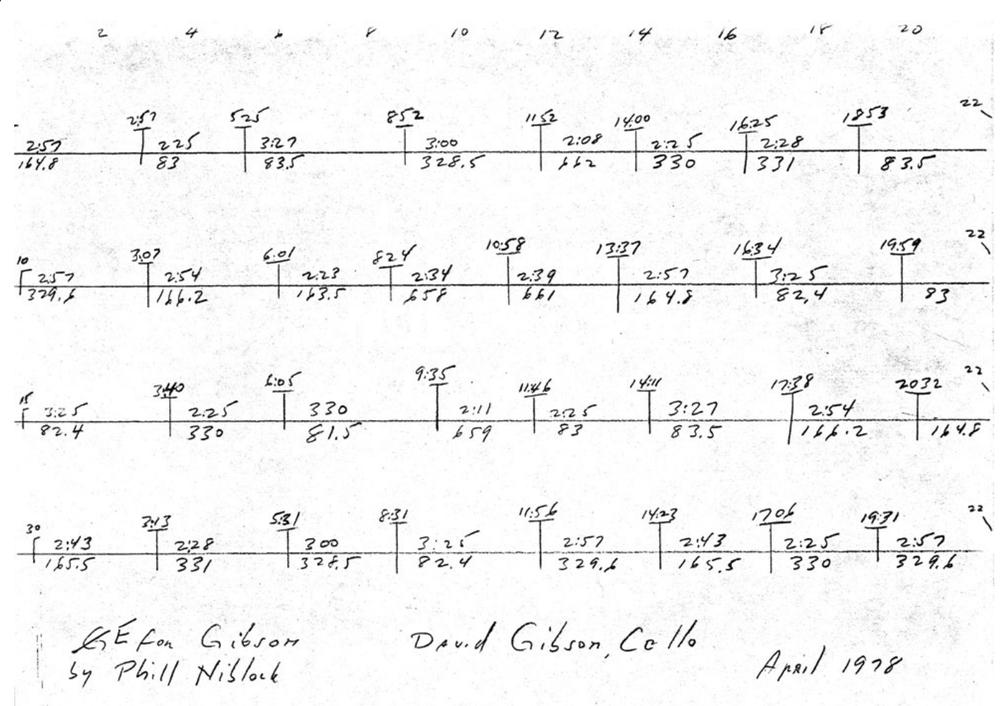 2 4 6 8 10 12 14 16 18 20
2:57 5:25 8:52 11:52 14:00 16:25 18:53 22
2:57 2:25 3:27 3:00 2:08 2:25 2:28
164.8 83 83.5 328.5 662 330 331 83.5
10 3:07 6:01 8:24 10:58 13:37 16:34 19:59 22
2:57 2:54 2:23 2:34 2:39 2:57 3:25
329.6 166.2 163.5 658 661 164.8 82.4 83
15 3:40 6:05 9:35 11:46 14:11 17:38 20:32 22
3:25 2:25 330 2:11 2:25 3:27 2:54
82.4 330 81.5 659 83 83.5 166.2 164.8
30 3:13 5:31 8:31 11:56 14:23 17:06 19:31 22
2:43 2:28 3:00 3:25 2:57 2:43 2:25 2:57
165.5 331 328.5 82.4 329.6 165.5 330 329.6
for Gibson David Gibson, Cello
by Phill Niblock April 1978